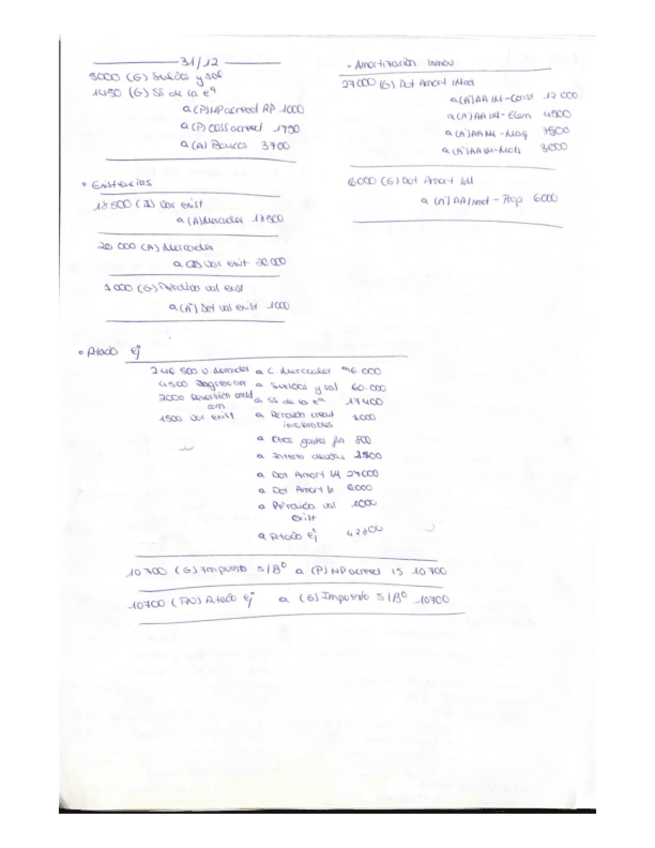 31/12
5000 (G) Sueldos y sal
1450 (G) SS de la eª
a (P) HP acreed RP 1000
a (P) OSS acreed 1750
a (A) Bancos 3700
• Existencias
18500 (I) Var exist
a (A) Mercader 18500
20 000 (A) Mercader
a (I) Var exist 20 000
1000 (G) Perdidas val exist
a (A⁻) Det val exist 1000
• Amortización Inmov
27000 (G) Dot Amort IMat
a (A⁻) AA IM - Const 12 000
a (A⁻) AA IM - Elem 4500
a (A⁻) AA IM - Maq 7500
a (A⁻) AA IM - Mob 3000
6000 (G) Dot Amort IM
a (A⁻) AA Inmat - Prop 6000
• Rtado ej
246 500 V. Mercader a C. Mercader 96 000
4500 a Sueldos y sal 60.000
2000 a SS de la eª 17400
com
1500 Var exist a Perdida cred 1000
incobrables
a Otros gastos fin 800
a Interes deudas 2500
a Dot Amort IM 27000
a Dot Amort II 6000
a Pérdidas val 1000
exist
a Rtado ej
10 700 (G) Impuesto S/Bº a (P) HP acreed IS 10 700
10700 (FN) Rtado ej a (G) Impuesto S/Bº 10700